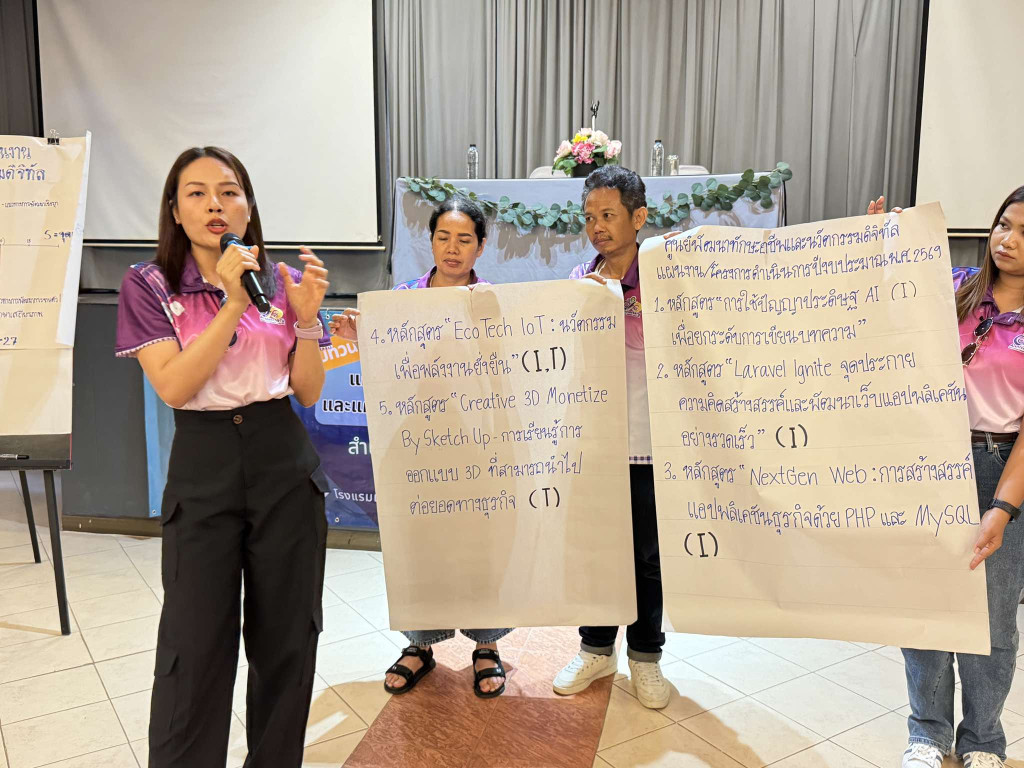 นงาน
มดิจิทัล
=27
4. หลักสูตร "Eco Tech IoT : นวัตกรรม
เพื่อพลังงานยั่งยืน" (I,T)
5. หลักสูตร "Creative 3D Monetize
By Sketch Up - การเรียนรู้การ
ออกแบบ 3D ที่สามารถนำไป
ต่อยอดทางธุรกิจ (T)
ศูนย์พัฒนาทักษะอาชีพและนวัตกรรมดิจิทัล
แผนงาน/โครงการดำเนินการปีงบประมาณ พ.ศ. 2569
1. หลักสูตร "การใช้ปัญญาประดิษฐ์ AI (I)
เพื่อยกระดับการเขียนบทความ"
2. หลักสูตร "Laravel Ignite จุดประกาย
ความคิดสร้างสรรค์และพัฒนาเว็บแอปพลิเคชัน
อย่างรวดเร็ว" (I)
3. หลักสูตร "NextGen Web : การสร้างสรรค์
แอปพลิเคชันธุรกิจด้วย PHP และ MySQL
(I)
และแ
สำ
โรงแรม